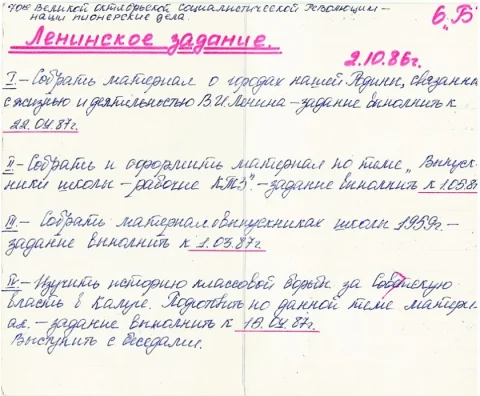 70й Великой Октябрьской Социалистической Революции –
наши пионерские дела.
6„Б"
Ленинское задание.
2.10.86г.
I – Собрать материал о городах нашей Родины, связанных
с жизнью и деятельностью В.И.Ленина – задание выполнить к
22.04.87г.
II – Собрать и оформить материал по теме „Выпуск-
ники школы – рабочие КТЗ". – задание выполнить к 1.05.87
III – Собрать материал о выпускниках школы 1959г. –
задание выполнить к 1.03.87г.
IV – Изучить историю классовой борьбы за Советскую
власть в Калуге. Подготовить по данной теме матери-
ал. – задание выполнить к 10.04.87г.
Выступить с беседами.